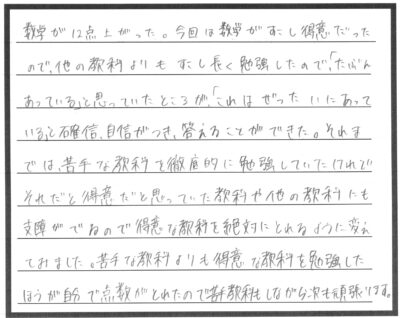 数学が12点上がった。今回は数学がすこし得意だった
ので、他の教科よりもすこし長く勉強したので、「たぶん
あっている」と思っていたところが、「これはぜったいにあって
いる」と確信、自信がつき、答えることができた。それま
では、苦手な教科を徹底的に勉強していたけれど
それだと得意だと思っていた教科や他の教科にも
支障がでるので得意な教科を絶対にとれるように変え
てみました。苦手な教科よりも得意な教科を勉強した
ほうが自分で点数がとれたので苦手教科もしながら次も頑張ります。